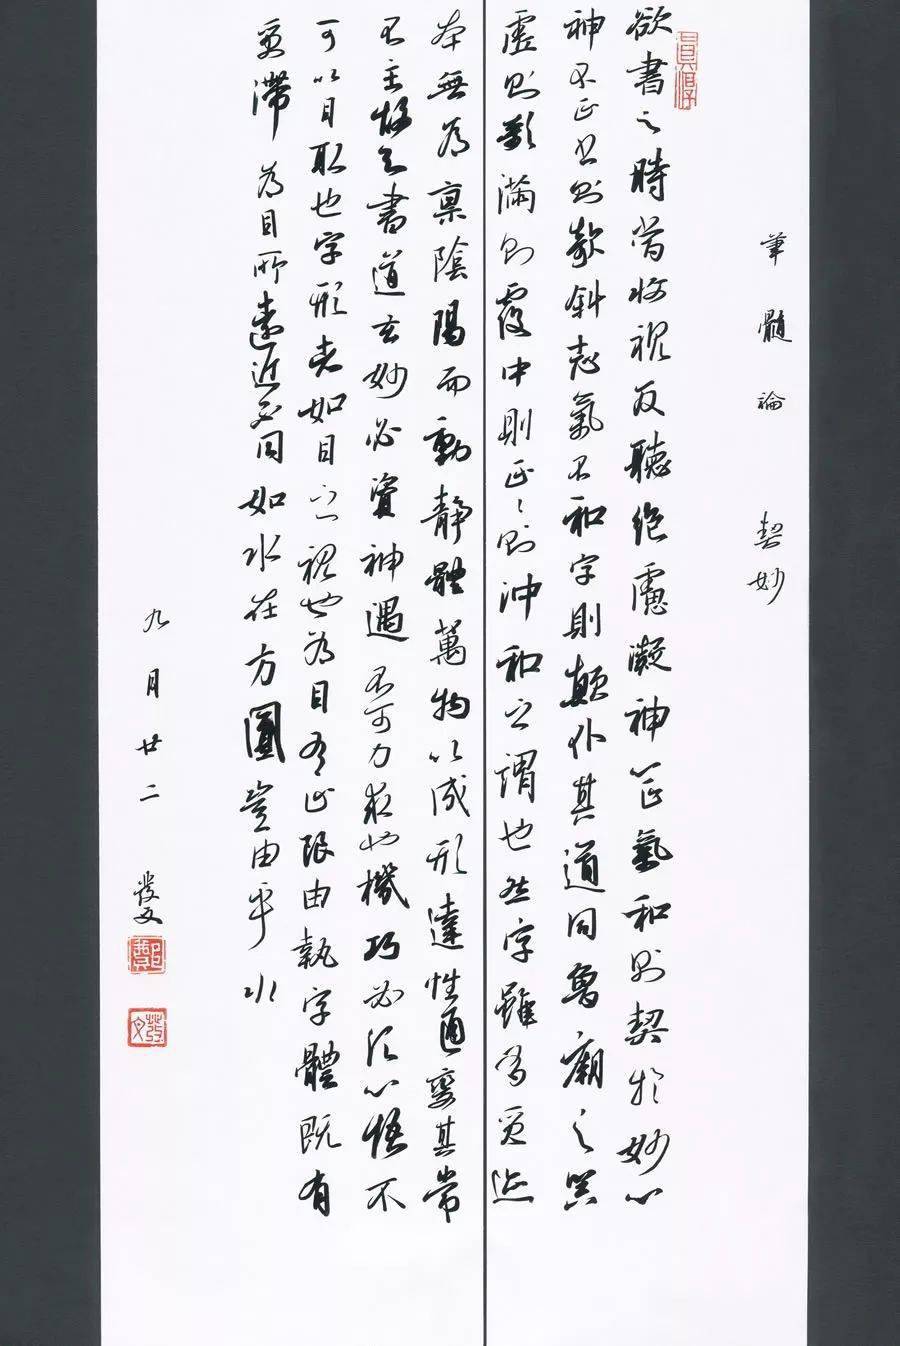 筆髓論 契妙
真淳
欲書之時當收視反聽絕慮凝神心正氣和則契於妙心
神不正書則欹斜志氣不和字則顛仆其道同魯廟之器
虛則欹滿則覆中則正〻則沖和之謂也然字雖有質迹
本無為稟陰陽而動靜體萬物以成形達性通變其常
不主故知書道玄妙必資神遇不可力求也機巧必須心悟不
可以目取也字形者如目之視也為目有止限由執字體既有
質滯為目所遠近不同如水在方圓豈由乎水
九月廿二 發文
鄭
發文